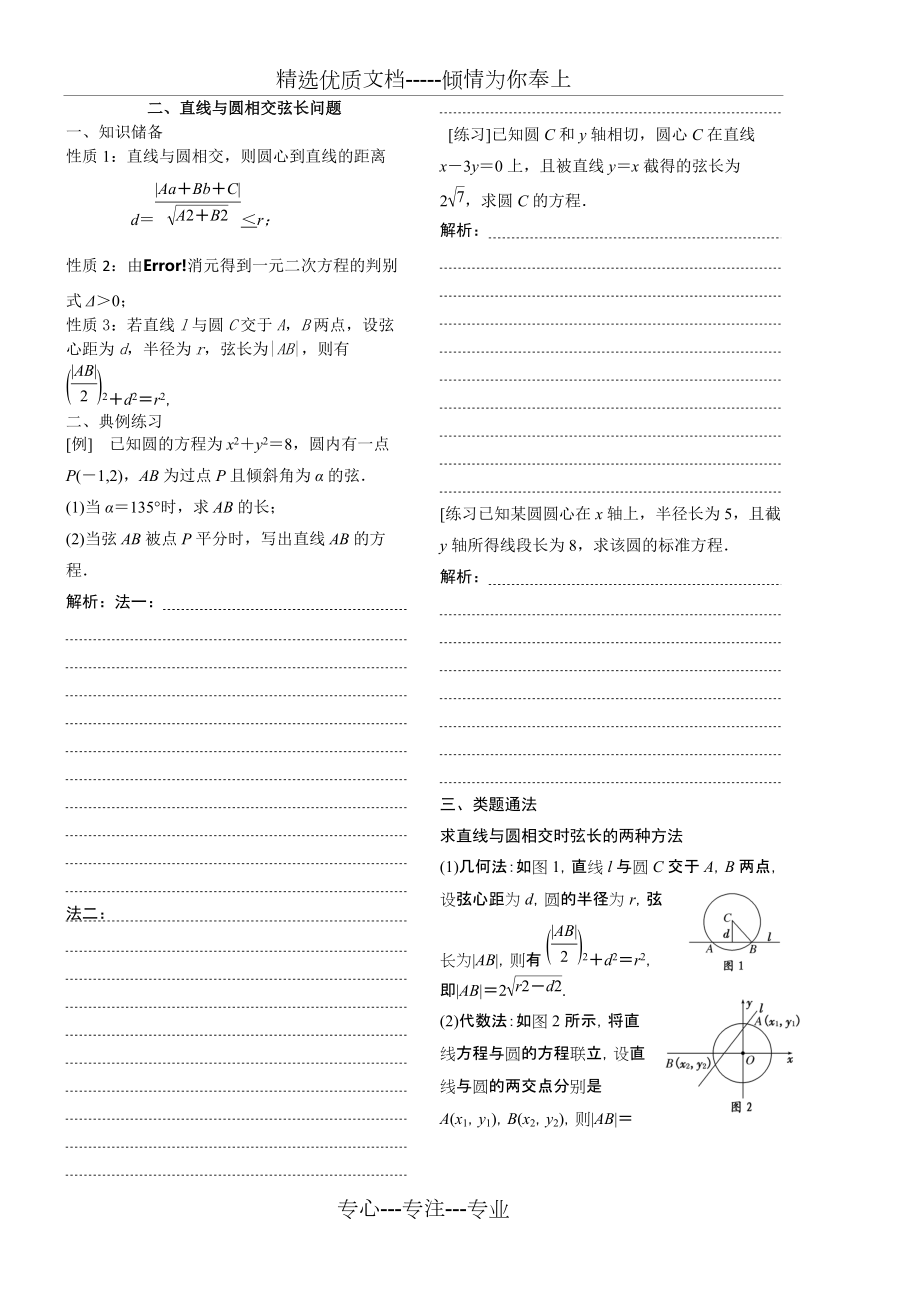 精选优质文档-----倾情为你奉上
二、直线与圆相交弦长问题
一、知识储备
性质 1：直线与圆相交，则圆心到直线的距离
d＝|Aa＋Bb＋C|/√A2＋B2 ≤r；
性质 2：由Error!消元得到一元二次方程的判别
式 Δ＞0；
性质 3：若直线 l 与圆 C交于 A，B 两点，设弦
心距为 d，半径为 r，弦长为|AB|，则有
(|AB|/2)2＋d2＝r2,
二、典例练习
[例] 已知圆的方程为 x2＋y2＝8，圆内有一点
P(－1,2)，AB 为过点 P 且倾斜角为 α 的弦．
(1)当 α＝135°时，求 AB 的长；
(2)当弦 AB 被点 P 平分时，写出直线 AB 的方
程．
解析：法一：
法二：
[练习]已知圆 C 和 y 轴相切，圆心 C 在直线
x－3y＝0 上，且被直线 y＝x 截得的弦长为
2√7，求圆 C 的方程．
解析：
[练习已知某圆圆心在 x 轴上，半径长为 5，且截
y 轴所得线段长为 8，求该圆的标准方程．
解析：
三、类题通法
求直线与圆相交时弦长的两种方法
(1)几何法：如图 1，直线 l 与圆 C 交于 A，B 两点，
设弦心距为 d，圆的半径为 r，弦
长为|AB|，则有(|AB|/2)2＋d2＝r2，
即|AB|＝2√r2－d2.
C
d
l
A
B
图 1
(2)代数法：如图 2 所示，将直
线方程与圆的方程联立，设直
线与圆的两交点分别是
A(x1，y1)，B(x2，y2)，则|AB|＝
y
l
A(x1,y1)
B(x2,y2)
O
x
图 2
专心---专注---专业